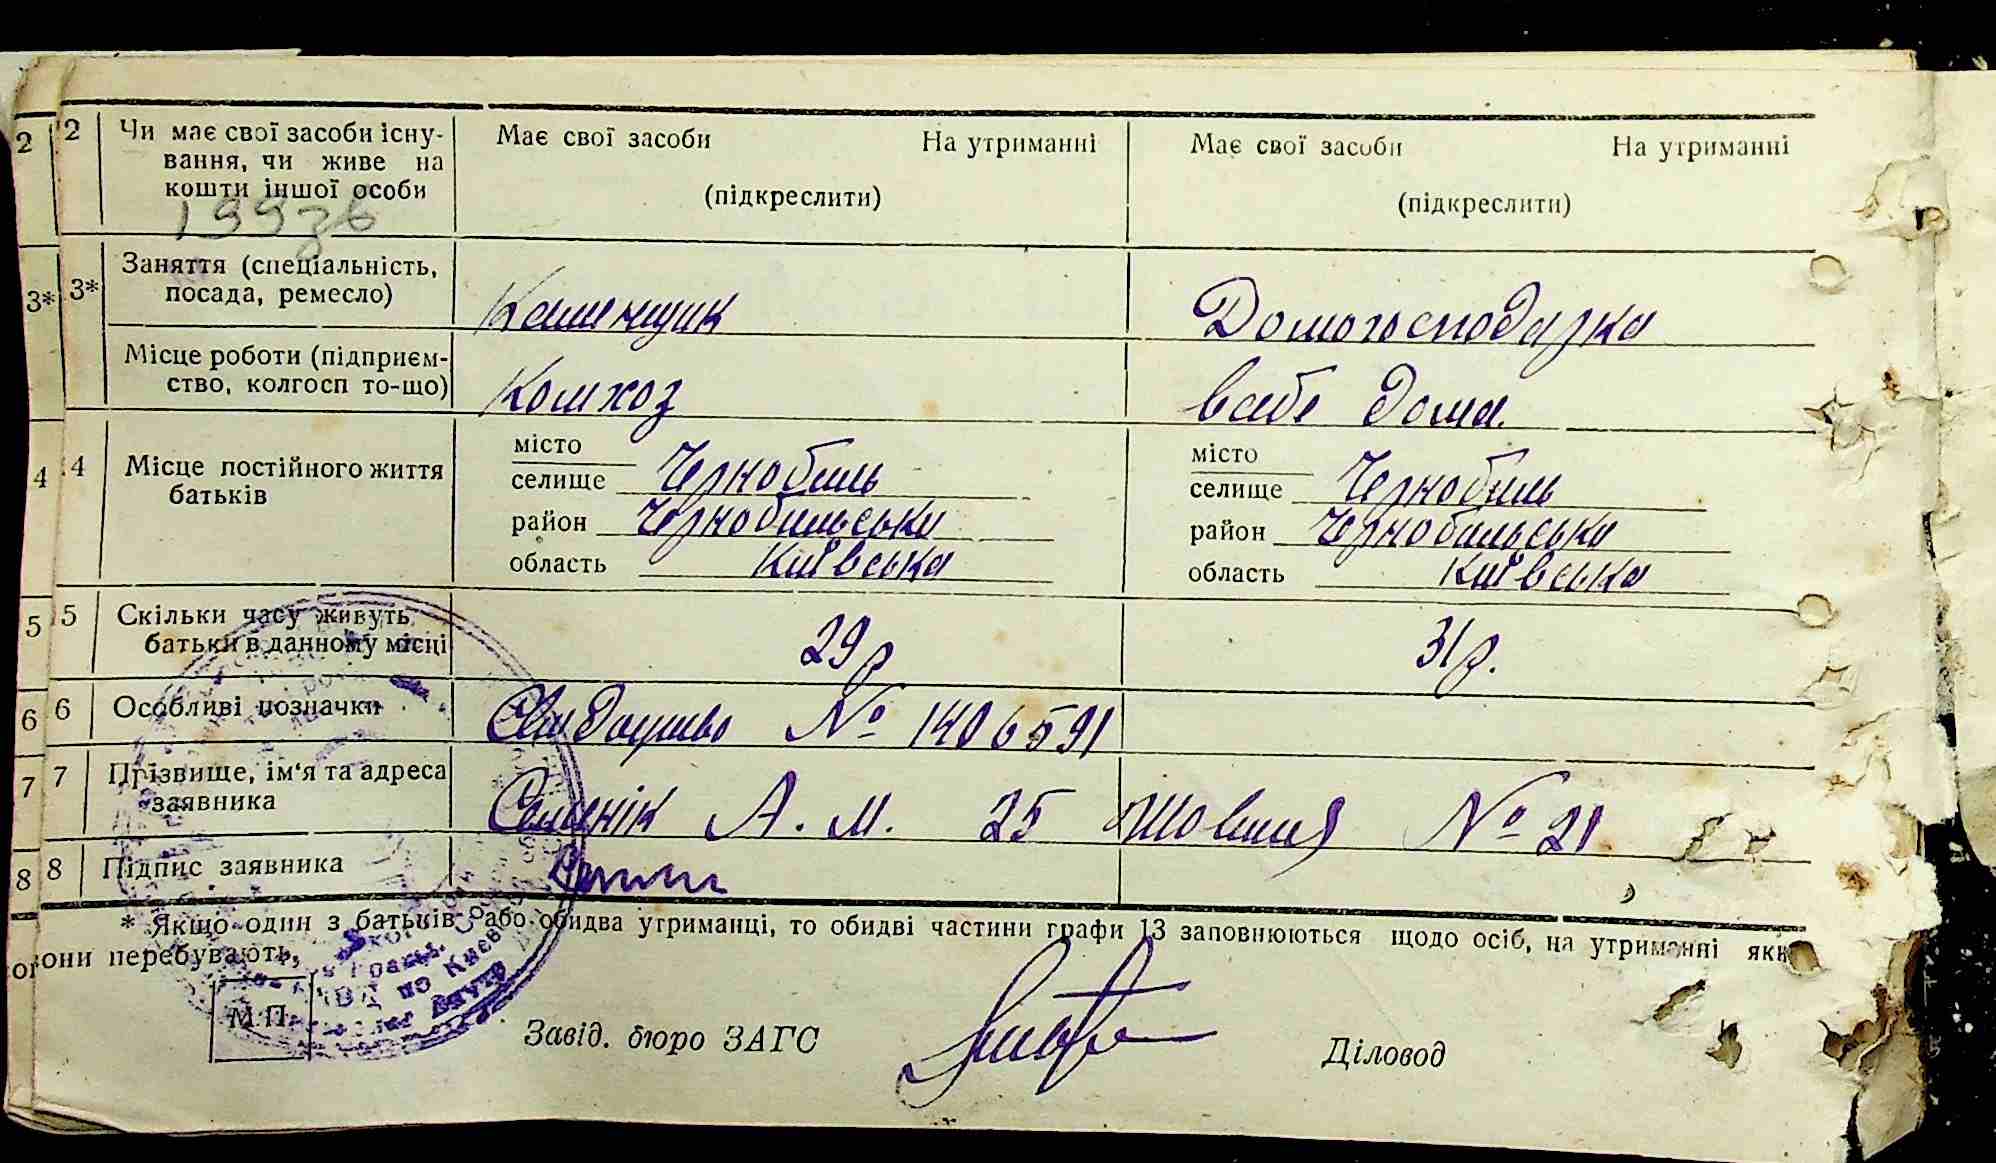 2 2 Чи має свої засоби існу- Має свої засоби На утриманні Має свої засоби На утриманні
вання, чи живе на
кошти іншої особи (підкреслити) (підкреслити)
3* 3* Заняття (спеціальність,
посада, ремесло) Каменщик Домогосподарка
Місце роботи (підприєм-
ство, колгосп то-що) Комхоз дома.
4 4 Місце постійного життя
батьків
місто місто
селище Чернобиль селище Чернобиль
район Чернобильська район Чернобильська
область Київська область Київська
5 5 Скільки часу живуть
батьки в данному місці 29 р 31 р.
6 6 Особливі позначки № 1406591
7 7 Прізвище, ім'я та адреса
заявника А. М. 25 № 21
8 8 Підпис заявника
* Якщо один з батьків або обидва утриманці, то обидві частини графи 13 заповнюються щодо осіб, на утриманні яки
вони перебувають,
М.П.
Завід. бюро ЗАГС Діловод